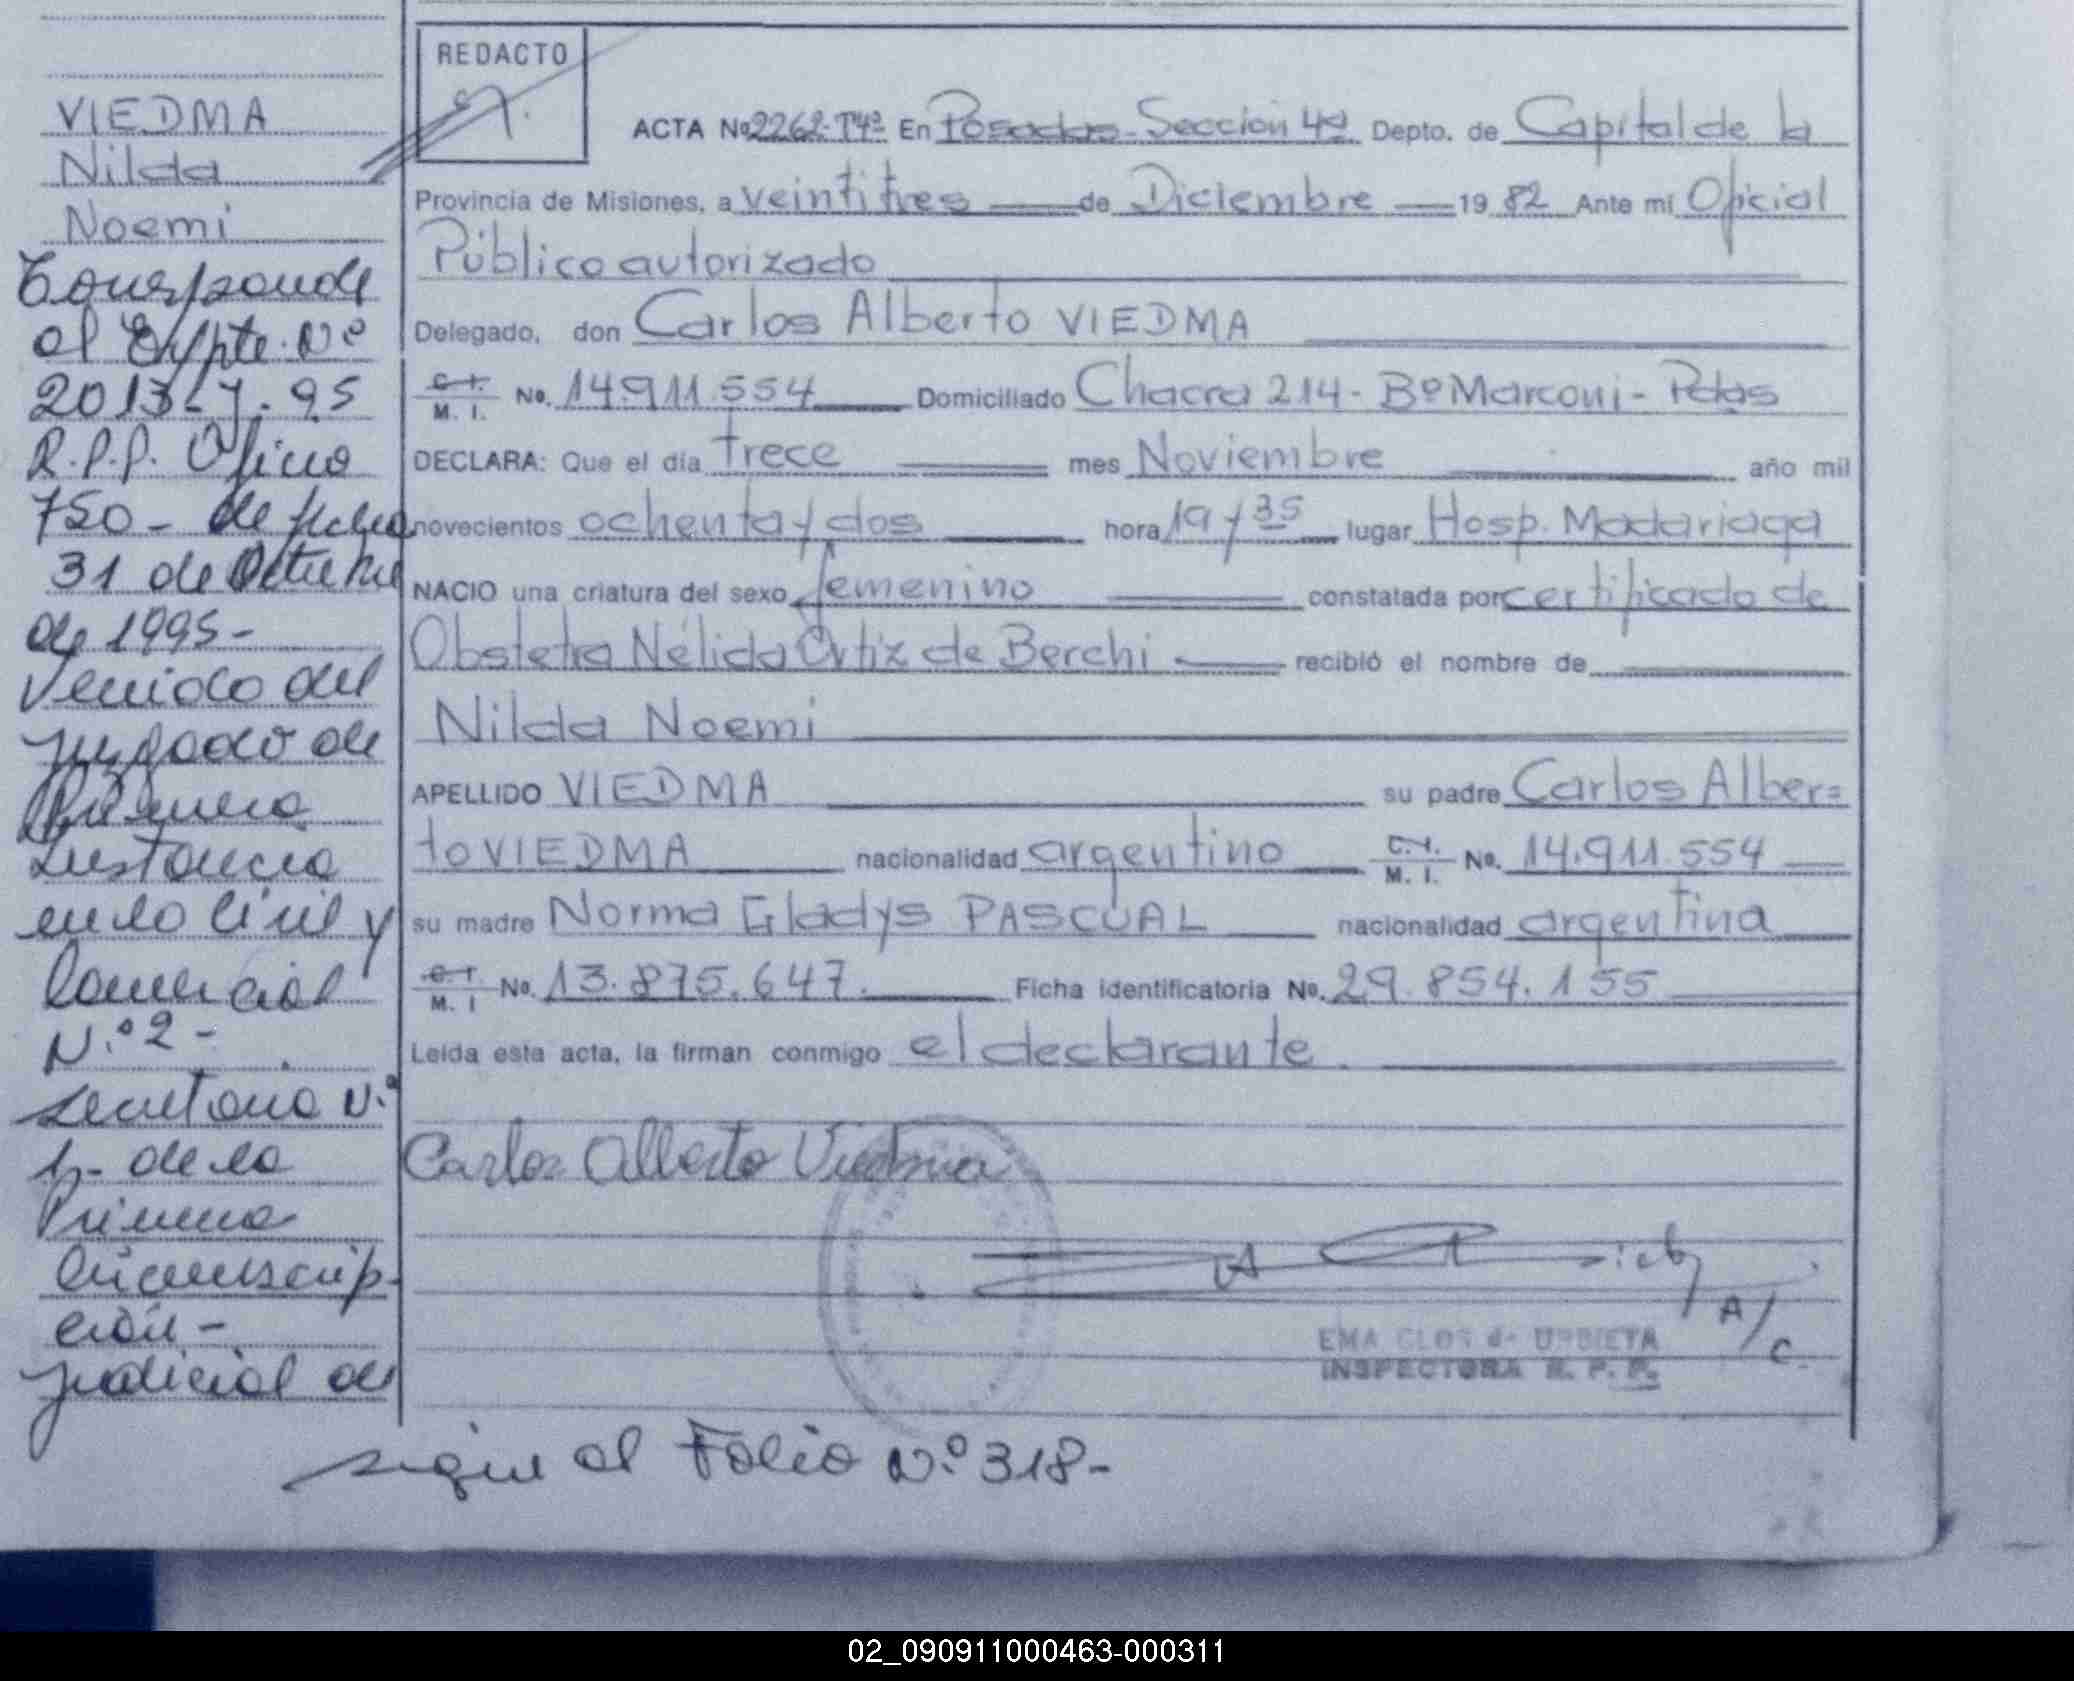 REDACTO
ACTA No 2262-T4º En Posadas-Sección 4ª Depto. de Capital de la
Provincia de Misiones, a veintitres de Diciembre 19 82 Ante mí Oficial
Público autorizado
Delegado, don Carlos Alberto VIEDMA
C. I. M. I. No. 14.911.554 Domiciliado Chacra 214- Bº Marconi- Pdas
DECLARA: Que el día trece mes Noviembre año mil
novecientos ochenta y dos hora 19 y 35 lugar Hosp. Madariaga
NACIO una criatura del sexo femenino constatada por certificado de
Obstetra Nélida Ortiz de Berchi recibió el nombre de
Nilda Noemi
APELLIDO VIEDMA su padre Carlos Alber=
to VIEDMA nacionalidad argentino C. I. M. I. No. 14.911.554
su madre Norma Gladys PASCUAL nacionalidad argentina
C. I. M. I No. 13.875.647. Ficha identificatoria No. 29.854.155
Leida esta acta, la firman conmigo el declarante
Carlos Alberto Viedma
A/c.
EMA CLOS de URBIETA
INSPECTORA R. P. P.
VIEDMA
Nilda
Noemi
Corresponde
al Expte. Nº
2013-
95
R.P.P. Oficio
750- de fecha
31 de Octubre
de 1995-
Venido del
Juzgado de
Primera
Instancia
en lo Civil y
Comercial
N.º 2-
Secretaria N.º
1- de la
Primera
Circunscrip-
ción-
Judicial de
sigue al Folio N.º 318-
02_090911000463-000311